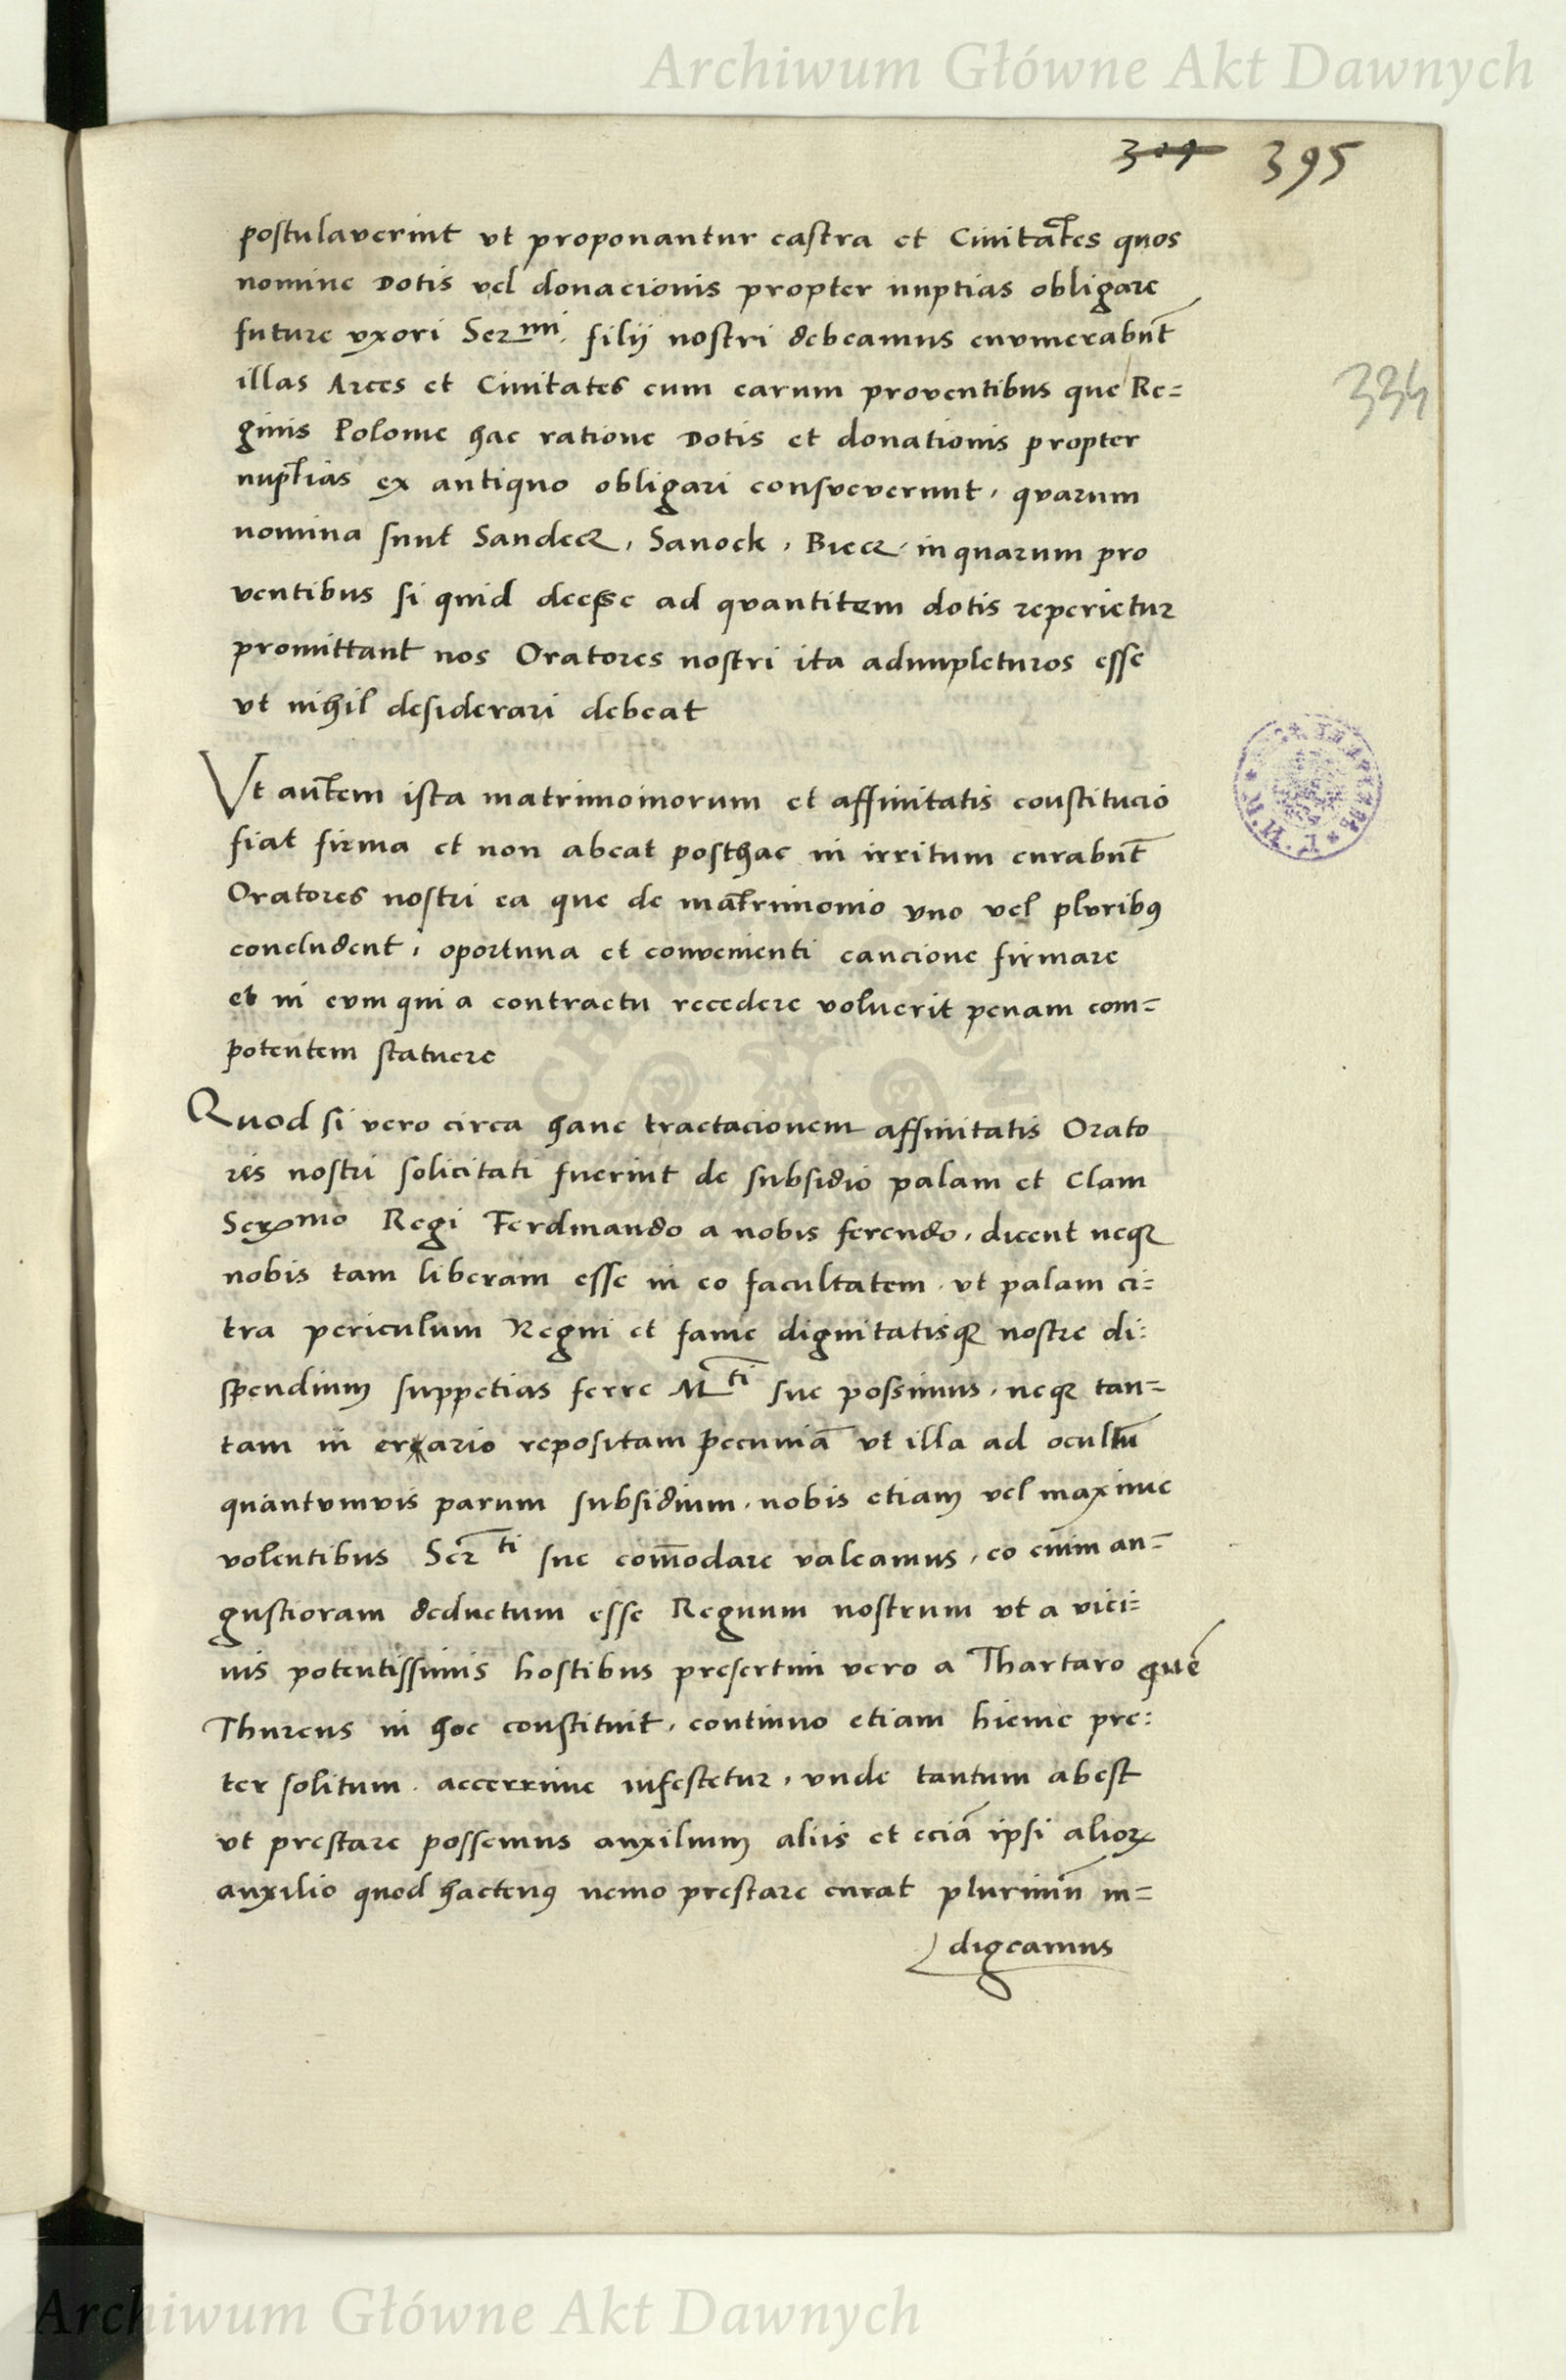 Archiwum Główne Akt Dawnych
309 395
postulaverint vt proponantur castra et Civitates quos
nomine Dotis vel donacionis propter nuptias obligare
future vxori Ser^mi. filij nostri debeamus envmerabūt
illas Arces et Civitates cum earum proventibus que Re=
ginis Polonie hac ratione Dotis et donationis propter
334
nuptias ex antiquo obligari consveverunt, qvarum
nomina sunt Sandecz, Sanock, Biecz in quarum pro
ventibus si quid deesse ad qvantitem dotis reperietur
promittant nos Oratores nostri ita adimpleturos esse
vt nihil desiderari debeat
Vt autem ista matrimoniorum et affinitatis constitucio
fiat firma et non abeat posthac in irritum curabūt
Oratores nostri ea que de matrimonio vno vel plvribꝰ
concludent, oportuna et convenienti caucione firmare
et in evm qui a contractu recedere voluerit penam com=
potentem statuere
Quod si vero circa hanc tractacionem affinitatis Orato
res nostri solicitati fuerint de subsidio palam et Clam
Ser^mo Regi Ferdinando a nobis ferendo, dicent neqꝫ
nobis tam liberam esse in eo facultatem. vt palam ci=
tra periculum Regni et fame dignitatisqꝫ nostre di:
spendium suppetias ferre M^ti sue possimus, neqꝫ tan=
tam in erario repositam pecuniā vt illa ad ocultū
quantvmvis parum subsidium, nobis etiam vel maxime
volentibus Ser^ti sue com̄odare valeamus, eo enim an=
gustioram deductum esse Regnum nostrum vt a vici=
nis potentissimis hostibus presertim vero a Thartaro quē
Thurcus in hoc constituit, continuo etiam hieme pre:
ter solitum. accerrime infestetur, vnde tantum abest
vt prestare possemus auxilium aliis et eciā ipsi alioꝝ
auxilio quod hactenꝰ nemo prestare curat plurimū in=
digeamus
Archiwum Główne Akt Dawnych